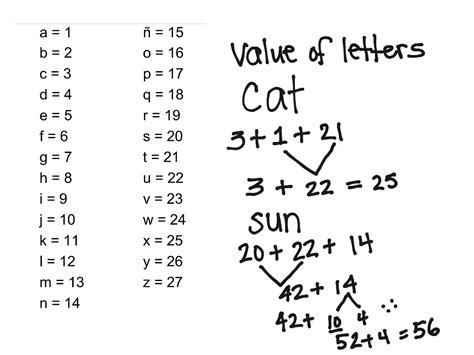 a = 1
b = 2
c = 3
d = 4
e = 5
f = 6
g = 7
h = 8
i = 9
j = 10
k = 11
l = 12
m = 13
n = 14
ñ = 15
o = 16
p = 17
q = 18
r = 19
s = 20
t = 21
u = 22
v = 23
w = 24
x = 25
y = 26
z = 27
Value of letters
Cat
3+1+21
3 + 22 = 25
sun
20+22+14
42+14
42+ 10 4 ∴
52+4=56